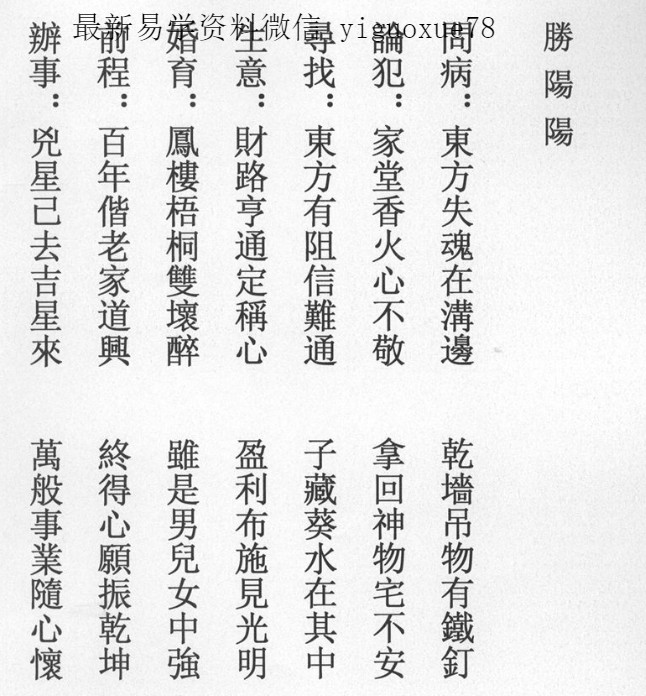 最新易学资料微信 yignoxue78
勝陽陽
問病：東方失魂在溝邊 乾墻吊物有鐵釘
論犯：家堂香火心不敬 拿回神物宅不安
尋找：東方有阻信難通 子藏葵水在其中
生意：財路亨通定稱心 盈利布施見光明
婚育：鳳樓梧桐雙壞醉 雖是男兒女中強
前程：百年偕老家道興 終得心願振乾坤
辦事：兇星己去吉星來 萬般事業隨心懷